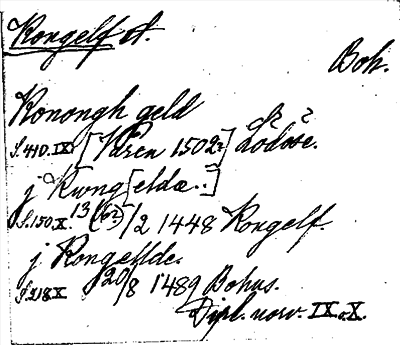 Kongelf st.
Boh.
Konongh geld
S. 410. IX. [Våren 1502?] Lödöse.
j Kwng[eldæ..]
S. 150. X. 13(6?)/2 1448 Kongelf.
j Kongellde.
S. 218 X 20/8 1489 Bohus.
Dipl. norv. IX o. X.